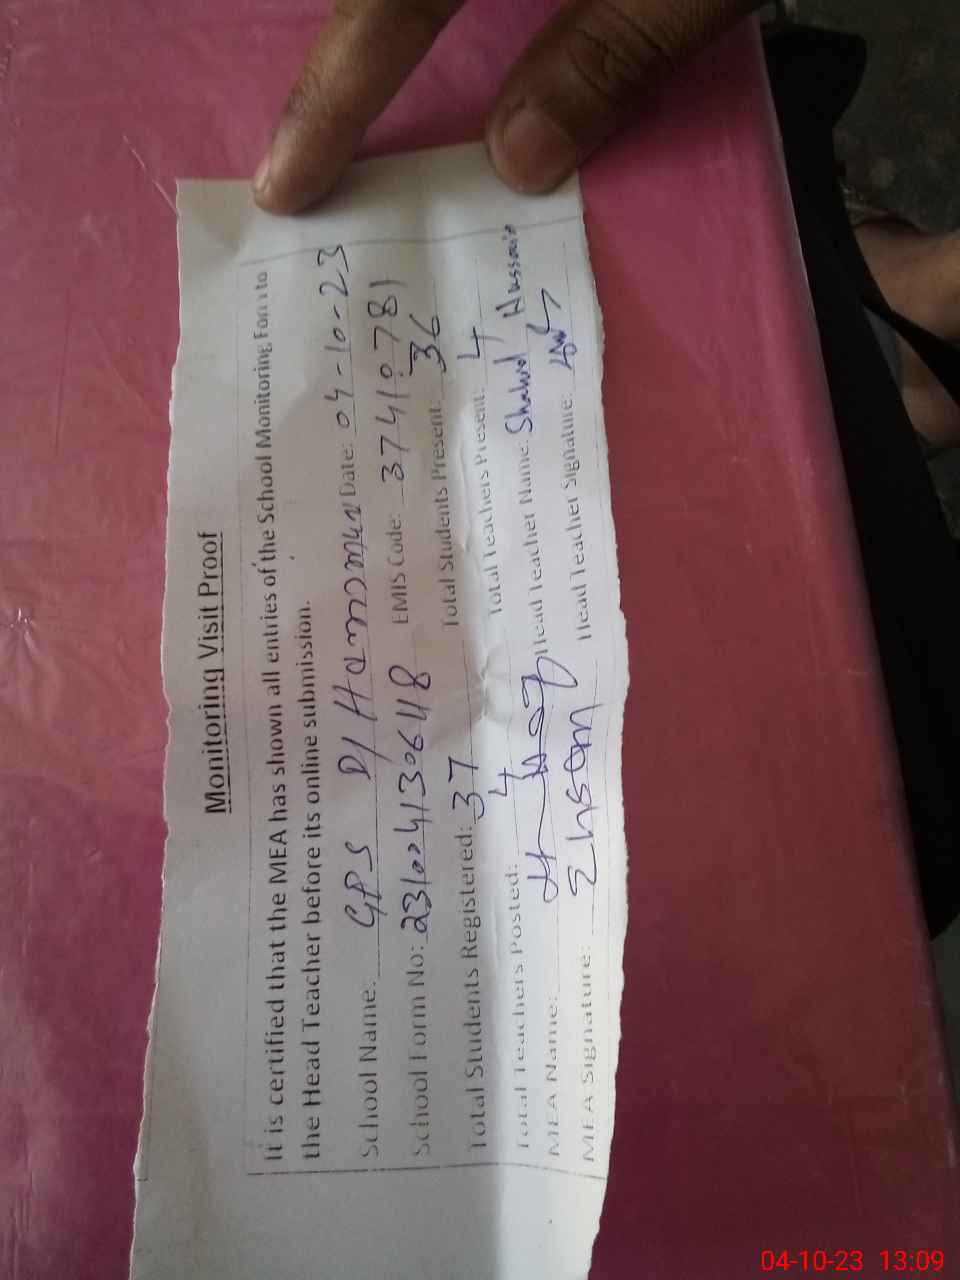 Monitoring Visit Proof
It is certified that the MEA has shown all entries of the School Monitoring Form to
the Head Teacher before its online submission.
School Name: GPS D/ Date: 04-10-23
School Form No: EMIS Code: 37410781
Total Students Registered: 37 Total Students Present: 36
Total Teachers Posted: 4 Total Teachers Present: 4
MEA Name: Head Teacher Name: Shahid Hussain
MEA Signature: Head Teacher Signature:
04-10-23 13:09